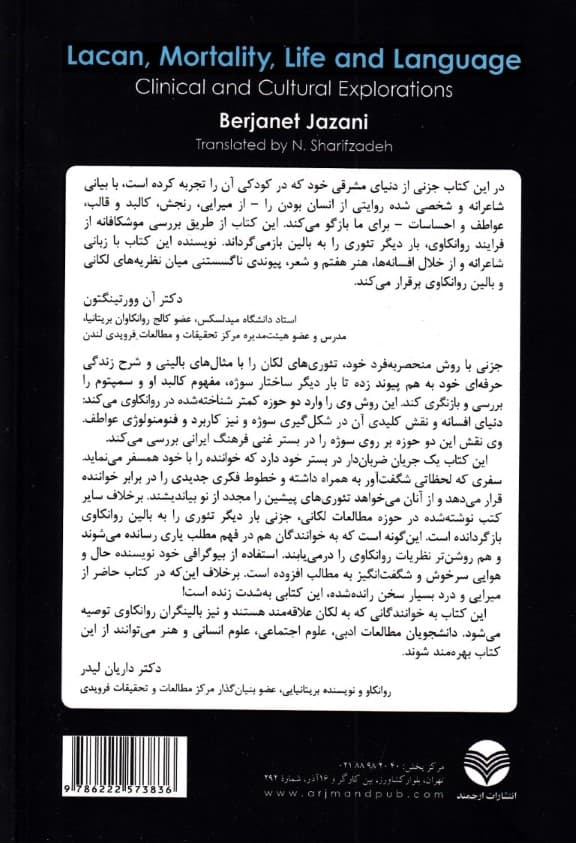 Lacan, Mortality, Life and Language
Clinical and Cultural Explorations
Berjanet Jazani
Translated by N. Sharifzadeh
در این کتاب جزنی از دنیای مشرقی خود که در کودکی آن را تجربه کرده است، با بیانی
شاعرانه و شخصی شده روایتی از انسان بودن را – از میرایی، رنجش، کالبد و قالب،
عواطف و احساسات – برای ما بازگو می‌کند. این کتاب از طریق بررسی موشکافانه از
فرایند روانکاوی، بار دیگر تئوری را به بالین بازمی‌گرداند. نویسنده این کتاب با زبانی
شاعرانه و از خلال افسانه‌ها، هنر هفتم و شعر، پیوندی ناگسستنی میان نظریه‌های لکانی
و بالین روانکاوی برقرار می‌کند.
دکتر آن وورتینگتون
استاد دانشگاه میدلسکس، عضو کالج روانکاوان بریتانیا،
مدرس و عضو هیئت‌مدیره مرکز تحقیقات و مطالعات فرویدی لندن
جزنی با روش منحصربه‌فرد خود، تئوری‌های لکان را با مثال‌های بالینی و شرح زندگی
حرفه‌ای خود به هم پیوند زده تا بار دیگر ساختار سوژه، مفهوم کالبد او و سمپتوم را
بررسی و بازنگری کند. این روش وی را وارد دو حوزه کمتر شناخته‌شده در روانکاوی می‌کند:
دنیای افسانه و نقش کلیدی آن در شکل‌گیری سوژه و نیز کاربرد و فنومنولوژی عواطف.
وی نقش این دو حوزه بر روی سوژه را در بستر غنی فرهنگ ایرانی بررسی می‌کند.
این کتاب یک جریان ضربان‌دار در بستر خود دارد که خواننده را با خود همسفر می‌نماید.
سفری که لحظاتی شگفت‌آور به همراه داشته و خطوط فکری جدیدی را در برابر خواننده
قرار می‌دهد و از آنان می‌خواهد تئوری‌های پیشین را مجدد از نو بیاندیشند. برخلاف سایر
کتب نوشته‌شده در حوزه مطالعات لکانی، جزنی بار دیگر تئوری را به بالین روانکاوی
بازگردانده است. این‌گونه است که به خوانندگان هم در فهم مطلب یاری رسانده می‌شوند
و هم روشن‌تر نظریات روانکاوی را درمی‌یابند. استفاده از بیوگرافی خود نویسنده حال و
هوایی سرخوش و شگفت‌انگیز به مطالب افزوده است. برخلاف این‌که در کتاب حاضر از
میرایی و درد بسیار سخن رانده‌شده، این کتابی به‌شدت زنده است!
این کتاب به خوانندگانی که به لکان علاقه‌مند هستند و نیز بالینگران روانکاوی توصیه
می‌شود. دانشجویان مطالعات ادبی، علوم اجتماعی، علوم انسانی و هنر می‌توانند از این
کتاب بهره‌مند شوند.
دکتر داریان لیدر
روانکاو و نویسنده بریتانیایی، عضو بنیان‌گذار مرکز مطالعات و تحقیقات فرویدی
9 786222 573836
مرکز پخش: ۸۸۹۸۲۰۴۰ ۰۲۱
تهران، بلوار کشاورز، بین کارگر و ۱۶آذر، شمارهٔ ۲۹۲
www.arjmandpub.com
انتشارات ارجمند